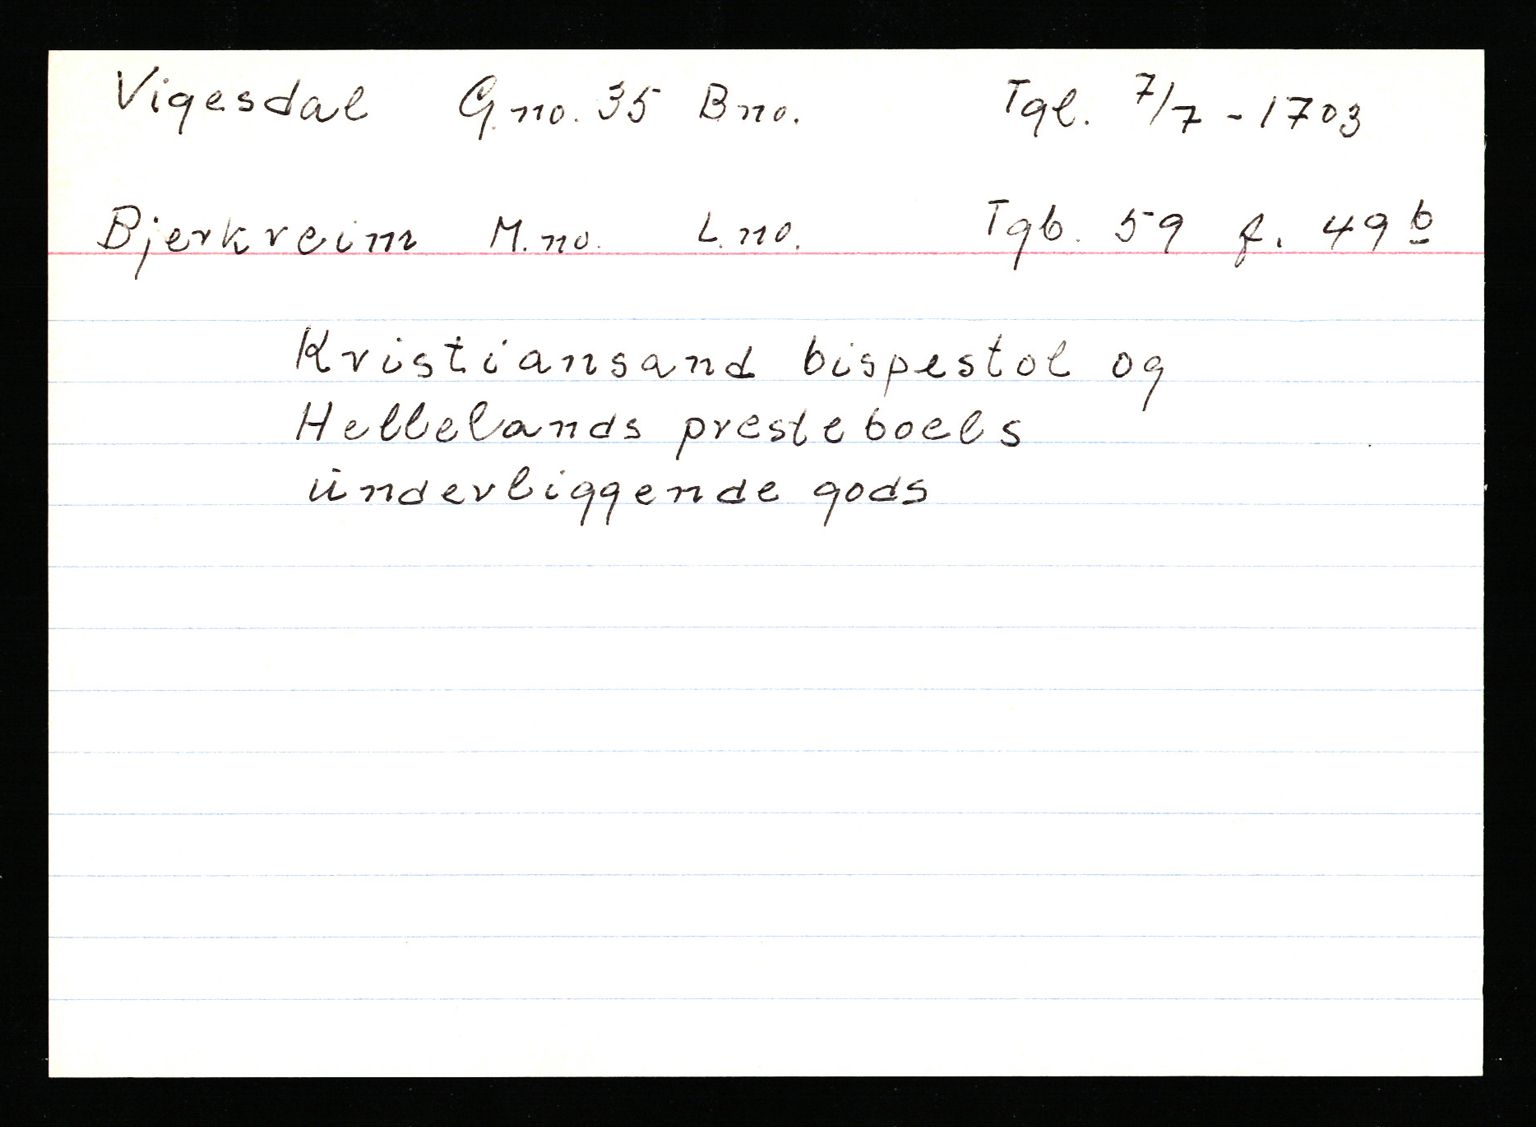 Vigesdal G.no. 35 Bno. Tgl. 7/7 - 1703
Bjerkreim M.no. L.no. Tgb. 59 f. 49 b
Kristiansand bispestol og
Hellelands presteboels
underliggende gods